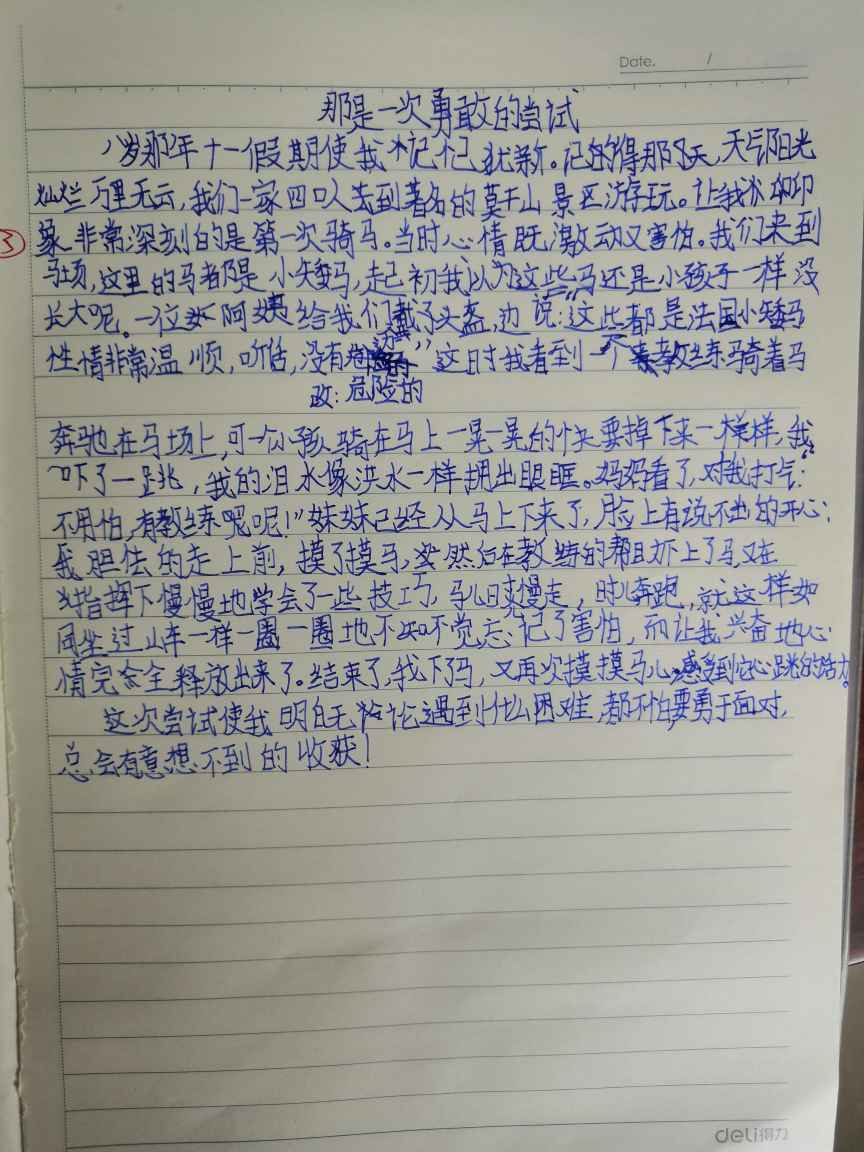 Date. /
那是一次勇敢的尝试
八岁那年十一假期使我记忆犹新。记得那天,天气阳光
灿烂万里无云,我们一家四口人去到著名的莫干山景区游玩。让我印
象非常深刻的是第一次骑马。当时心情既激动又害怕。我们来到
马场,这里的马都是小矮马,起初我以为这些马还是小孩子一样没
长大呢。一位女阿姨给我们戴了头盔,边说:“这些都是法国小矮马
性情非常温顺,听话,没有”这时我看到一个教练骑着马
改:危险的
奔驰在马场上,可一个小孩骑在马上一晃一晃的快要掉下来一样,我
吓了一跳,我的泪水像洪水一样拥出眼眶。妈妈看了,对我打气:“
不用怕,有教练呢!”妹妹已经从马上下来了,脸上有说不出的开心;
我胆怯的走上前,摸了摸马,然后在教练的帮助下上了马,又在
指挥下慢慢地学会了一些技巧,马儿时慢走,时儿奔跑,就这样如
同坐过山车一样一圈一圈地不知不觉忘记了害怕,而让我兴奋地心
情完全释放出来了。结束了,我下了马,又再次摸摸马儿感受到它心跳的活力。
这次尝试使我明白无论遇到什么困难,都不怕要勇于面对,
总会有意想不到的收获!
3
deli得力